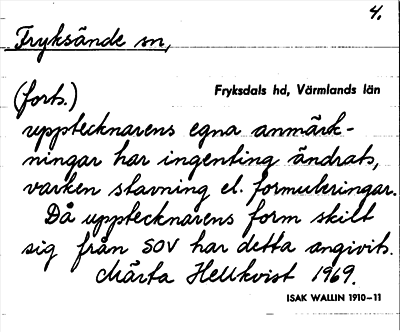 4.
Fryksände sn,
Fryksdals hd, Värmlands län
(forts.)
upptecknarens egna anmärk-
ningar har ingenting ändrats,
varken stavning el. formuleringar.
Då upptecknarens form skilt
sig från SOV har detta angivits.
Märta Hellkvist 1969.
ISAK WALLIN 1910–11